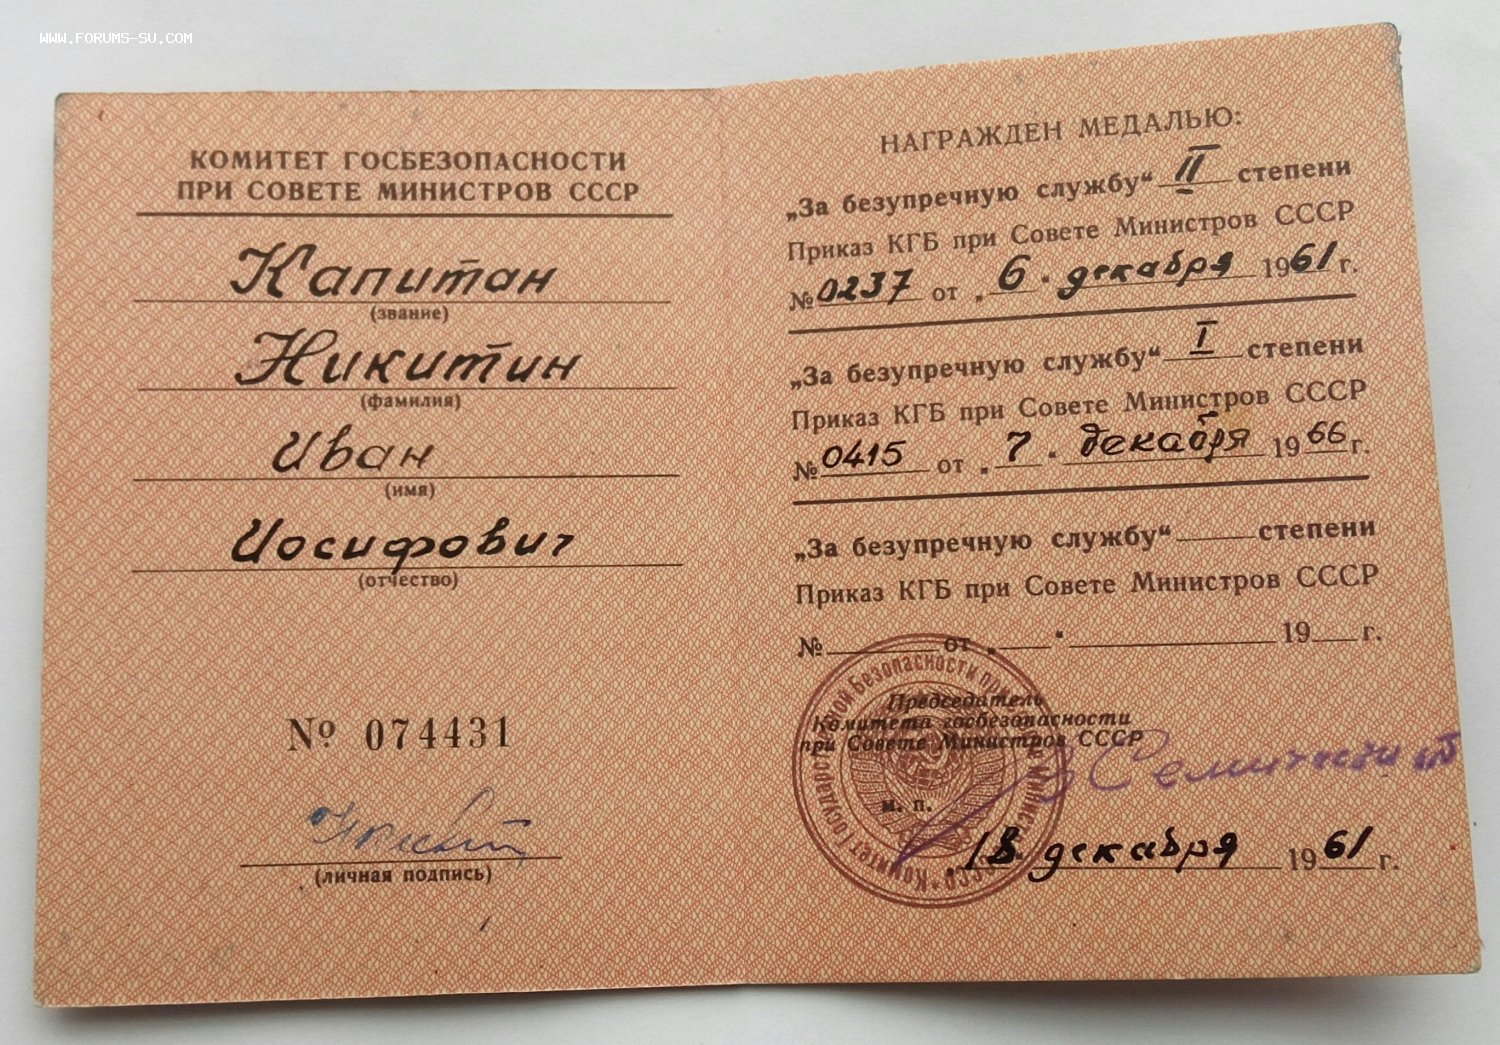 WWW.FORUMS-SU.COM
КОМИТЕТ ГОСБЕЗОПАСНОСТИ
ПРИ СОВЕТЕ МИНИСТРОВ СССР
Капитан
(звание)
Никитин
(фамилия)
Иван
(имя)
Иосифович
(отчество)
№ 074431
(личная подпись)
НАГРАЖДЕН МЕДАЛЬЮ:
„За безупречную службу“ II степени
Приказ КГБ при Совете Министров СССР
№ 0237 от „ 6 " декабря 1961 г.
„За безупречную службу“ I степени
Приказ КГБ при Совете Министров СССР
№ 0415 от „ 7 " декабря 1966 г.
„За безупречную службу“ степени
Приказ КГБ при Совете Министров СССР
№ от „ " 19 г.
Председатель
Комитета госбезопасности
при Совете Министров СССР
м. п.
18 декабря 1961 г.